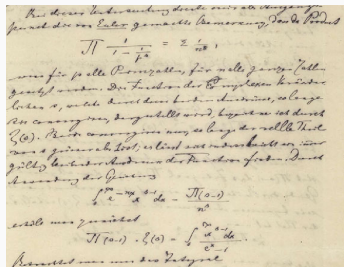 Bei dieser Untersuchung diente mir als Ausgangs-
punkt die von Euler gemachte Bemerkung, dass das Product
∏ 1/(1 − 1/pˢ) = Σ 1/nˢ,
wenn für p alle Primzahlen, für n alle ganzen Zahlen
gesetzt werden. Die Function der complexen Veränder-
lichen s, welche durch diese beiden Ausdrücke, so lange
sie convergiren, dargestellt wird, bezeichne ich durch
ζ(s). Beide convergiren nur, so lange der reelle Theil
von s grösser als 1 ist; es lässt sich indess leicht ein immer
gültig bleibender Ausdruck der Function finden. Durch
Anwendung der Gleichung
∫₀^∞ e^(−nx) x^(s−1) dx = Π(s−1)/nˢ
erhält man zunächst
Π(s−1) · ζ(s) = ∫₀^∞ x^(s−1) dx/(eˣ − 1).
Betrachtet man nun das Integral